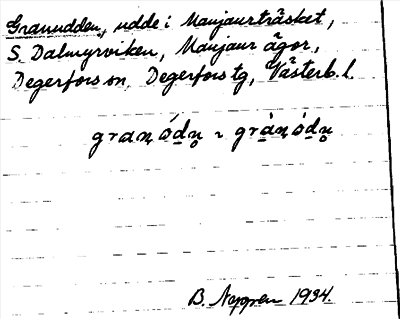 Granudden, udde i Manjaurträsket,
S. Dalmyrviken, Manjaur ägor,
Degerfors sn, Degerfors tg, Västerb. l.
granó̱du̥ ~ grànó̱du̥
B. 1934.